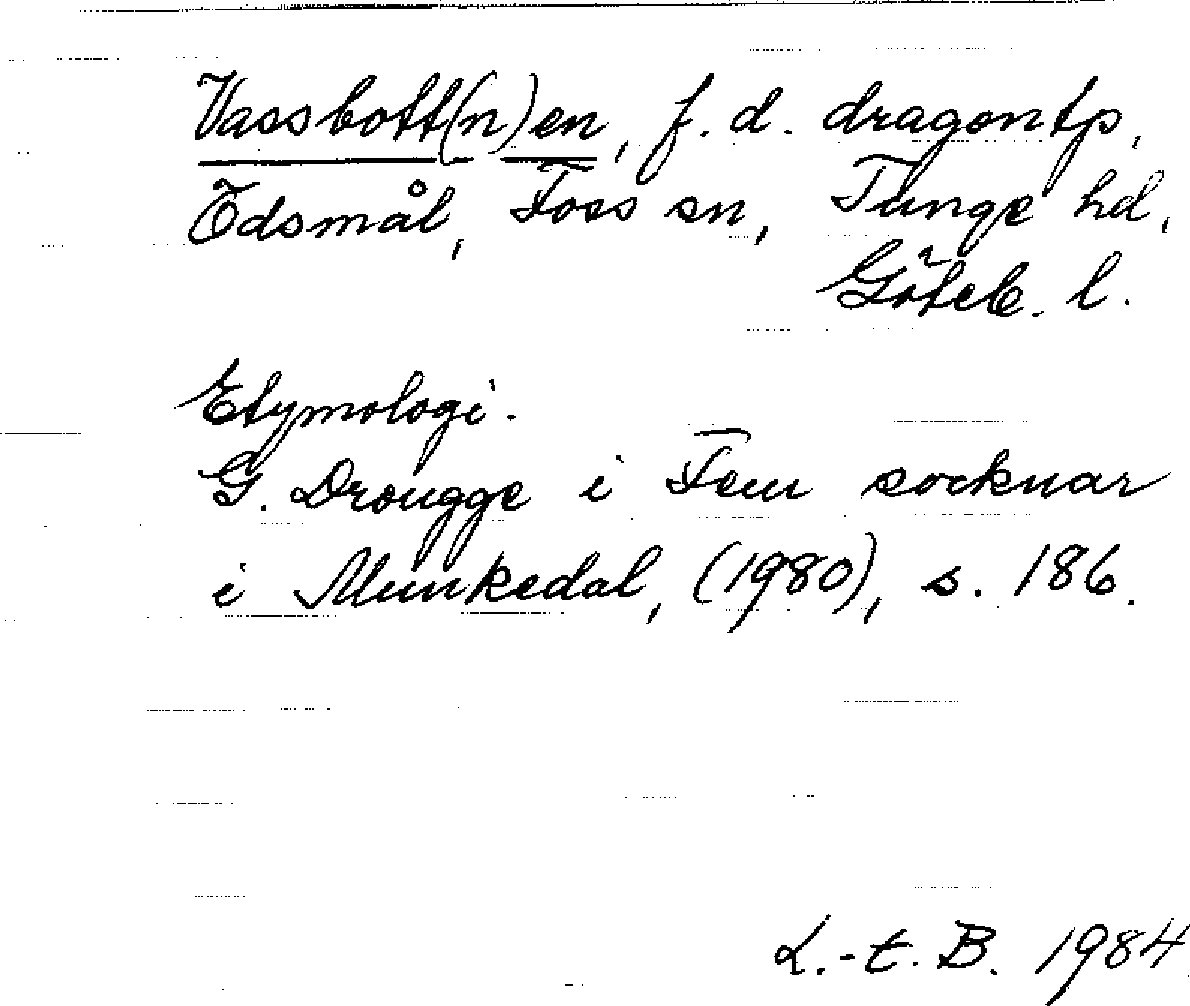 Vassbott(n)en, f. d. dragontp,
Ödsmål, Foss sn, Tunge hd,
Göteb. l.
Etymologi.
G. Drougge i Fem socknar
i Munkedal, (1980), s. 186.
L.-t. B. 1984